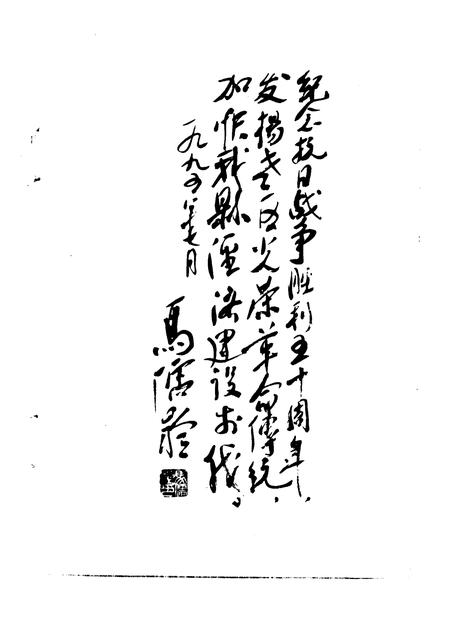 紀念抗日战争胜利五十周年，
发揚老区光荣革命傳统，
加快縣经济建设步伐。
一九九五年七月
馬儒